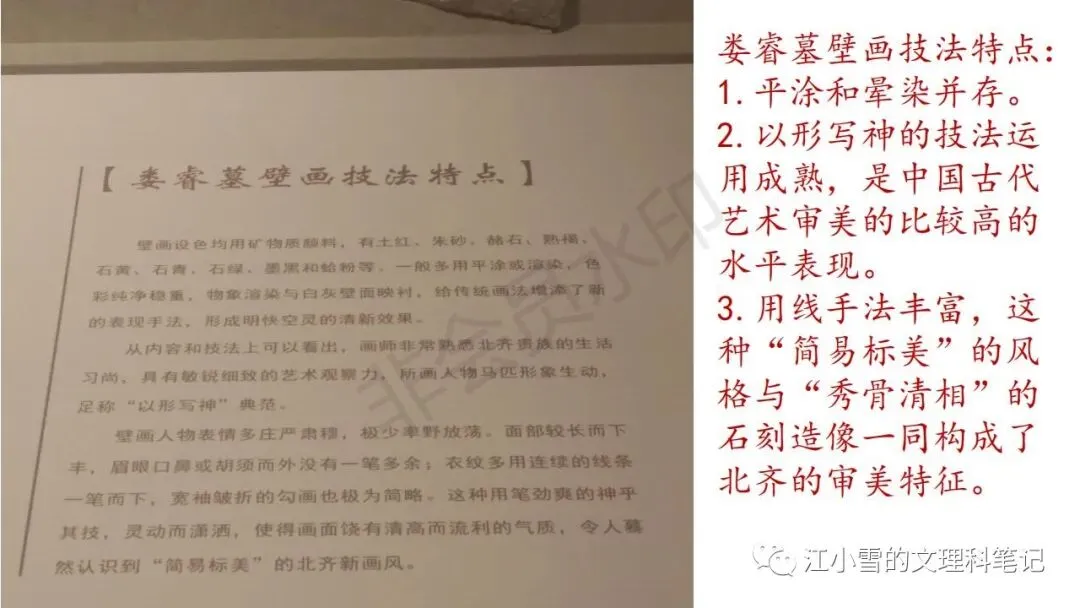 【娄睿墓壁画技法特点】
壁画设色均用矿物质颜料，有土红、朱砂、赭石、熟褐、
石黄、石青、石绿、墨黑和蛤粉等，一般多用平涂或渲染，色
彩纯净稳重，物象渲染与白灰壁面映衬，给传统画法增添了新
的表现手法，形成明快空灵的清新效果。
从内容和技法上可以看出，画师非常熟悉北齐贵族的生活
习尚，具有敏锐细致的艺术观察力，所画人物马匹形象生动，
足称“以形写神”典范。
壁画人物表情多庄严肃穆，极少率野放荡。面部较长而下
丰，眉眼口鼻或胡须而外没有一笔多余；衣纹多用连续的线条
一笔而下，宽袖皱折的勾画也极为简略。这种用笔劲爽的神乎
其技，灵动而潇洒，使得画面饶有清高而流利的气质，令人蓦
然认识到“简易标美”的北齐新画风。
非会员水印
娄睿墓壁画技法特点：
1.平涂和晕染并存。
2.以形写神的技法运
用成熟，是中国古代
艺术审美的比较高的
水平表现。
3.用线手法丰富，这
种“简易标美”的风
格与“秀骨清相”的
石刻造像一同构成了
北齐的审美特征。
江小雪的文理科笔记